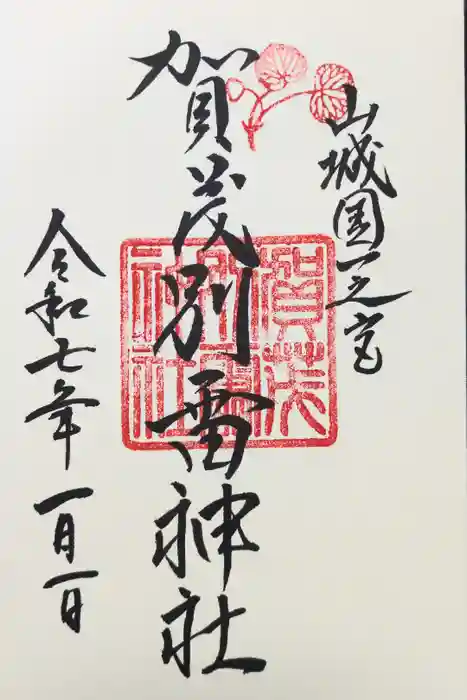 山城国一之宮
賀茂別雷神社
賀茂
別雷
神社
令和七年一月一日